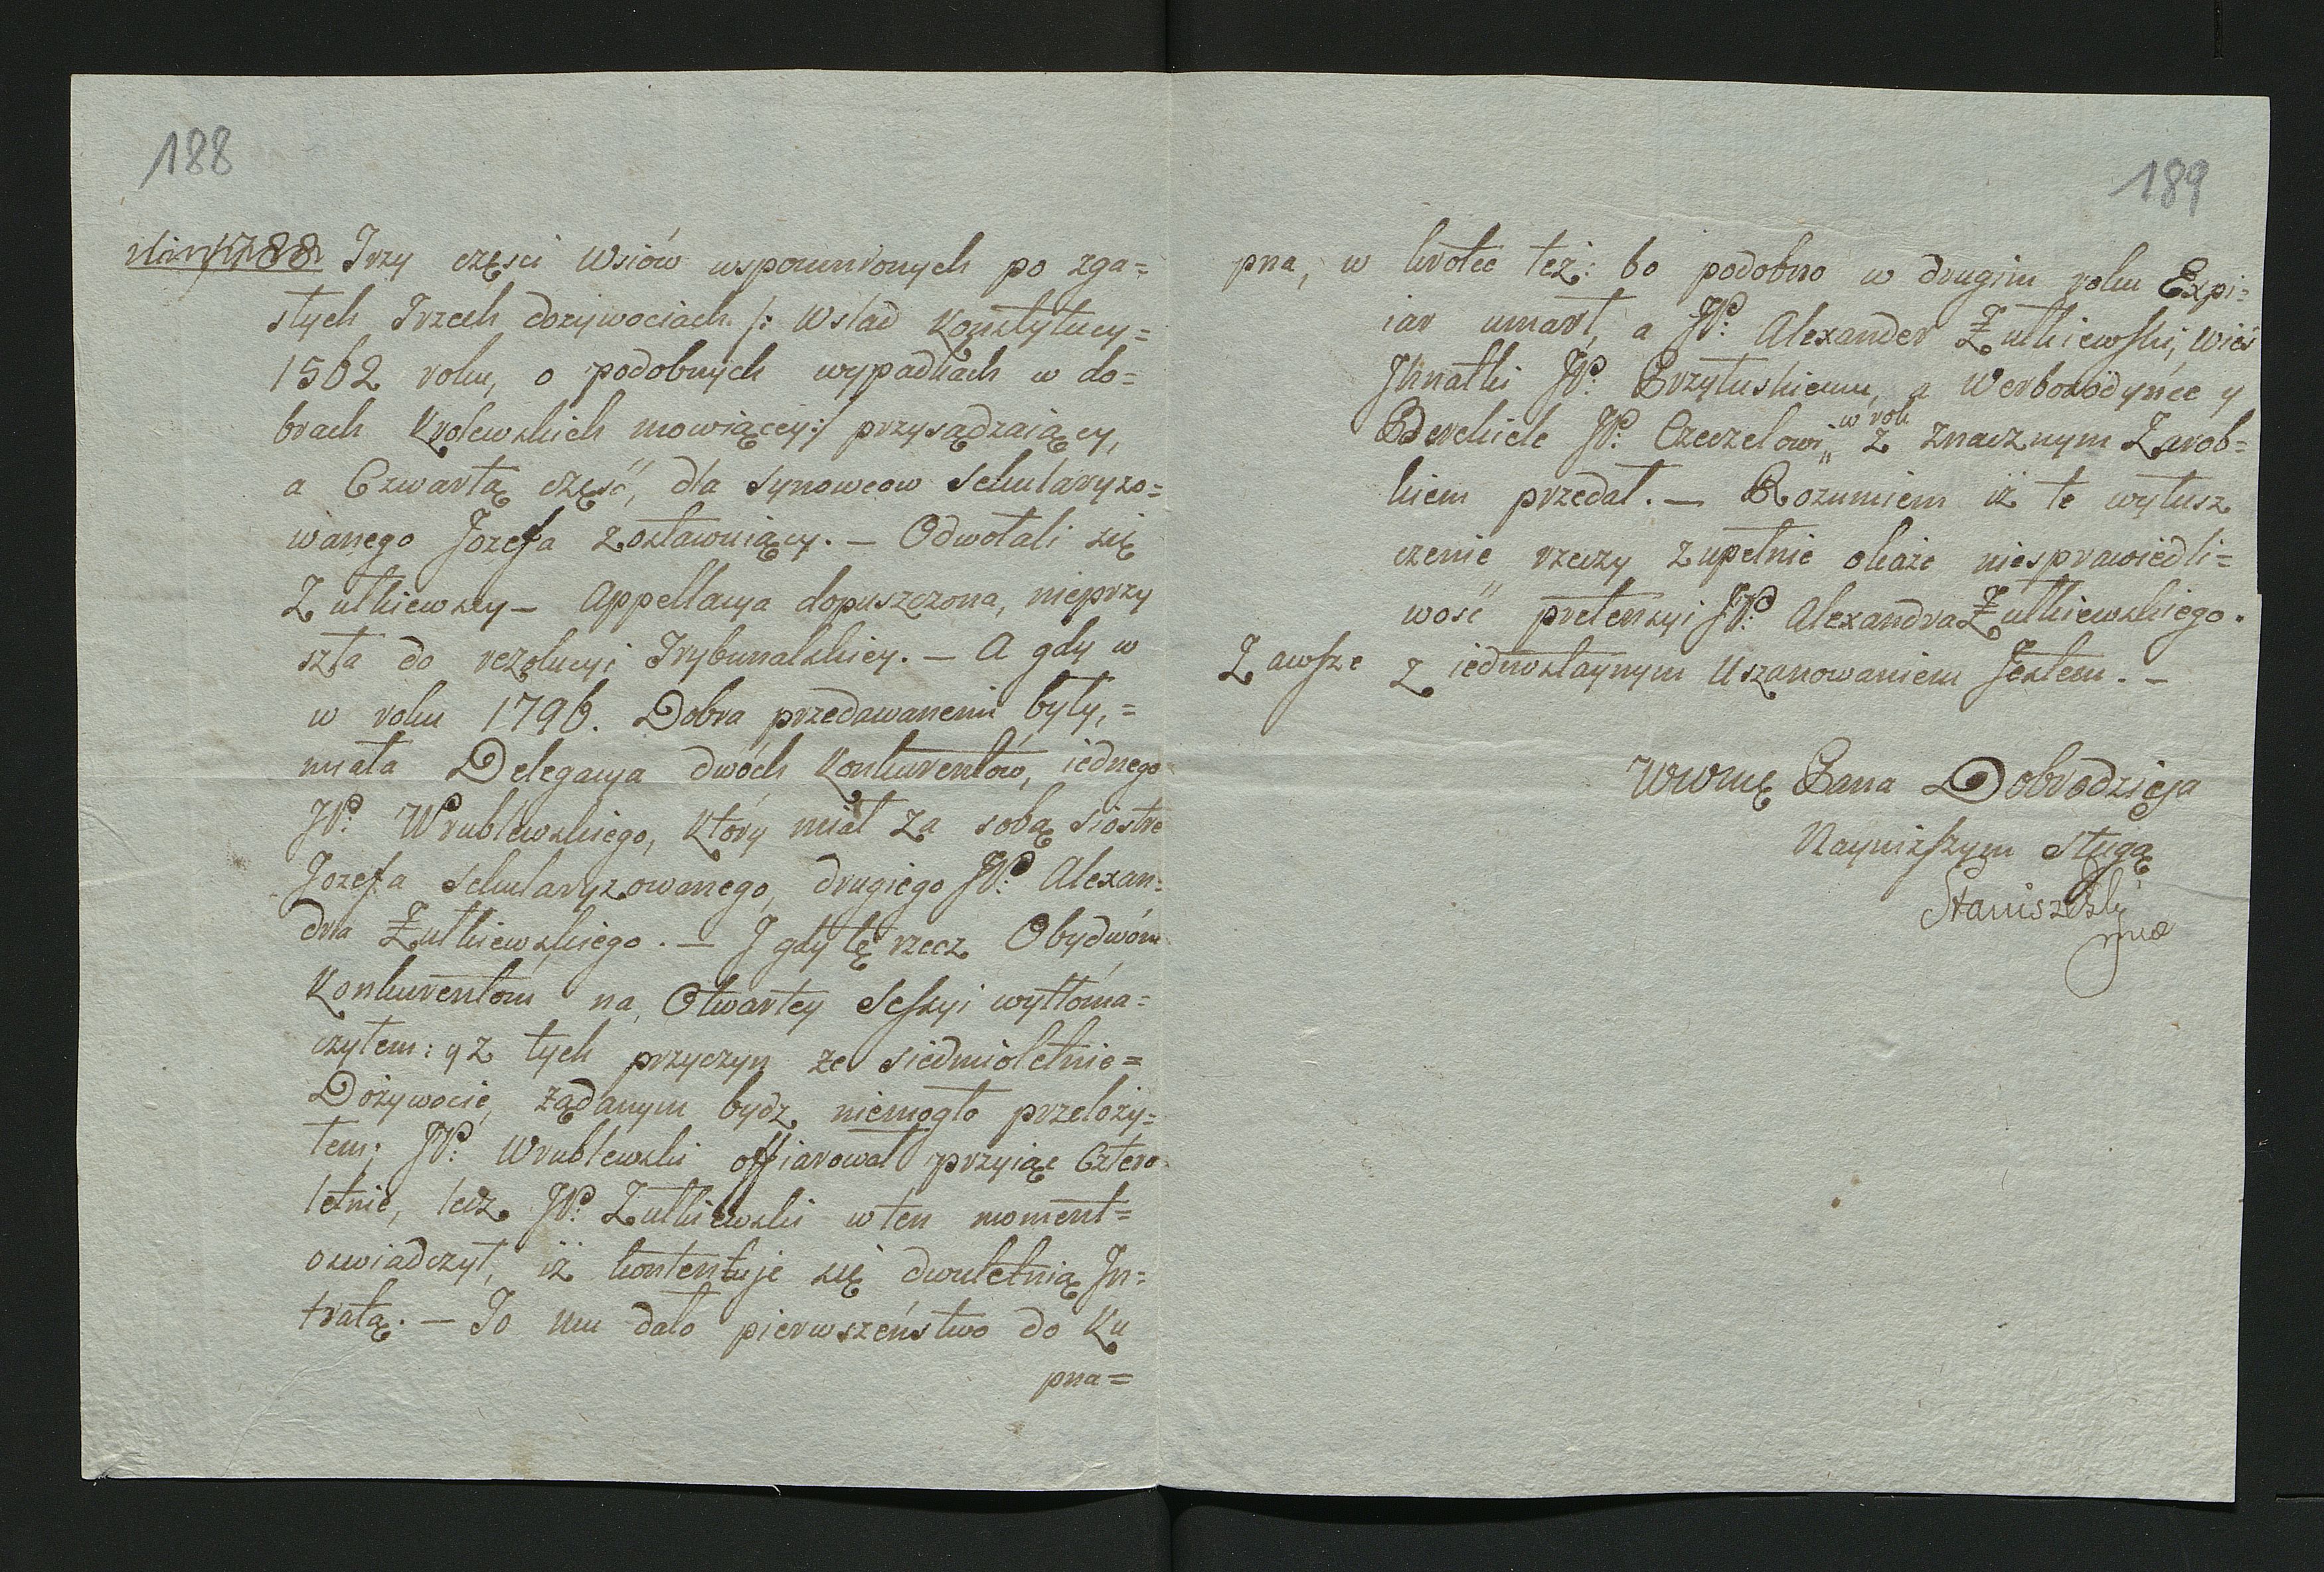 188
1788 Trzy części Wsiów wspomnionych po zga=
słych Trzech dozywociach /: Wslad Konstytucy=
1562 roku, o podobnych wypadkach w do=
brach Krolewskich mowiącey:/ przysądzaiący,
a Czwartą część, dla synowcow sekularyzo=
wanego Jozefa zostawuiący. — Odwołali się
Zułkiewscy — Appellacya dopuszczona, nieprzy
szła do rezolucyi Trybunalskiey. — A gdy w
w roku 1796. Dobra przedawanemi były, =
miała Delegacya dwóch Konkurentów, iednego
JP: Wrublewskiego, który miał za sobą siostrę
Jozefa sekularyzowanego, drugiego JP: Alexan=
dra Żułkiewskiego. — I gdy tę rzecz Obydwóm
Konkurentom na Otwartey Sessyi wytłóma=
czyłem: y z tych przyczyn ze siedmioletnie=
Dożywocie, ządanym bydz niemogło przełoży=
łem; JP: Wrublewski offiarował przyiąc Cztero
letnie, lecz JP: Zułkiewski w ten moment=
oswiadczył, iż kontentuje się dwuletnią In=
tratą. — To mu dało pierwszeństwo do Ku
pna=
189
pna, w krotce też: bo podobno w drugim roku Expi=
iar umarł, a JP: Alexander Żułkiewski, wieś
Ihnatki JP: Przyłuskiemu, a Werboródyńce y
Berehiele JP: Czeczelowi,, w rok
z znacznym Zarob=
kiem przedał. — Rozumiem iż te wyłusz
czenie rzeczy zupełnie okaże niesprawiedli=
wość pretensyi JP: Alexandra Żułkiewskiego.
Zawsze z iednostaynym Uszanowaniem Jestem. —
WWMę Pana Dobrodzieja
Nayniższym sługą
Staniszewski
mp